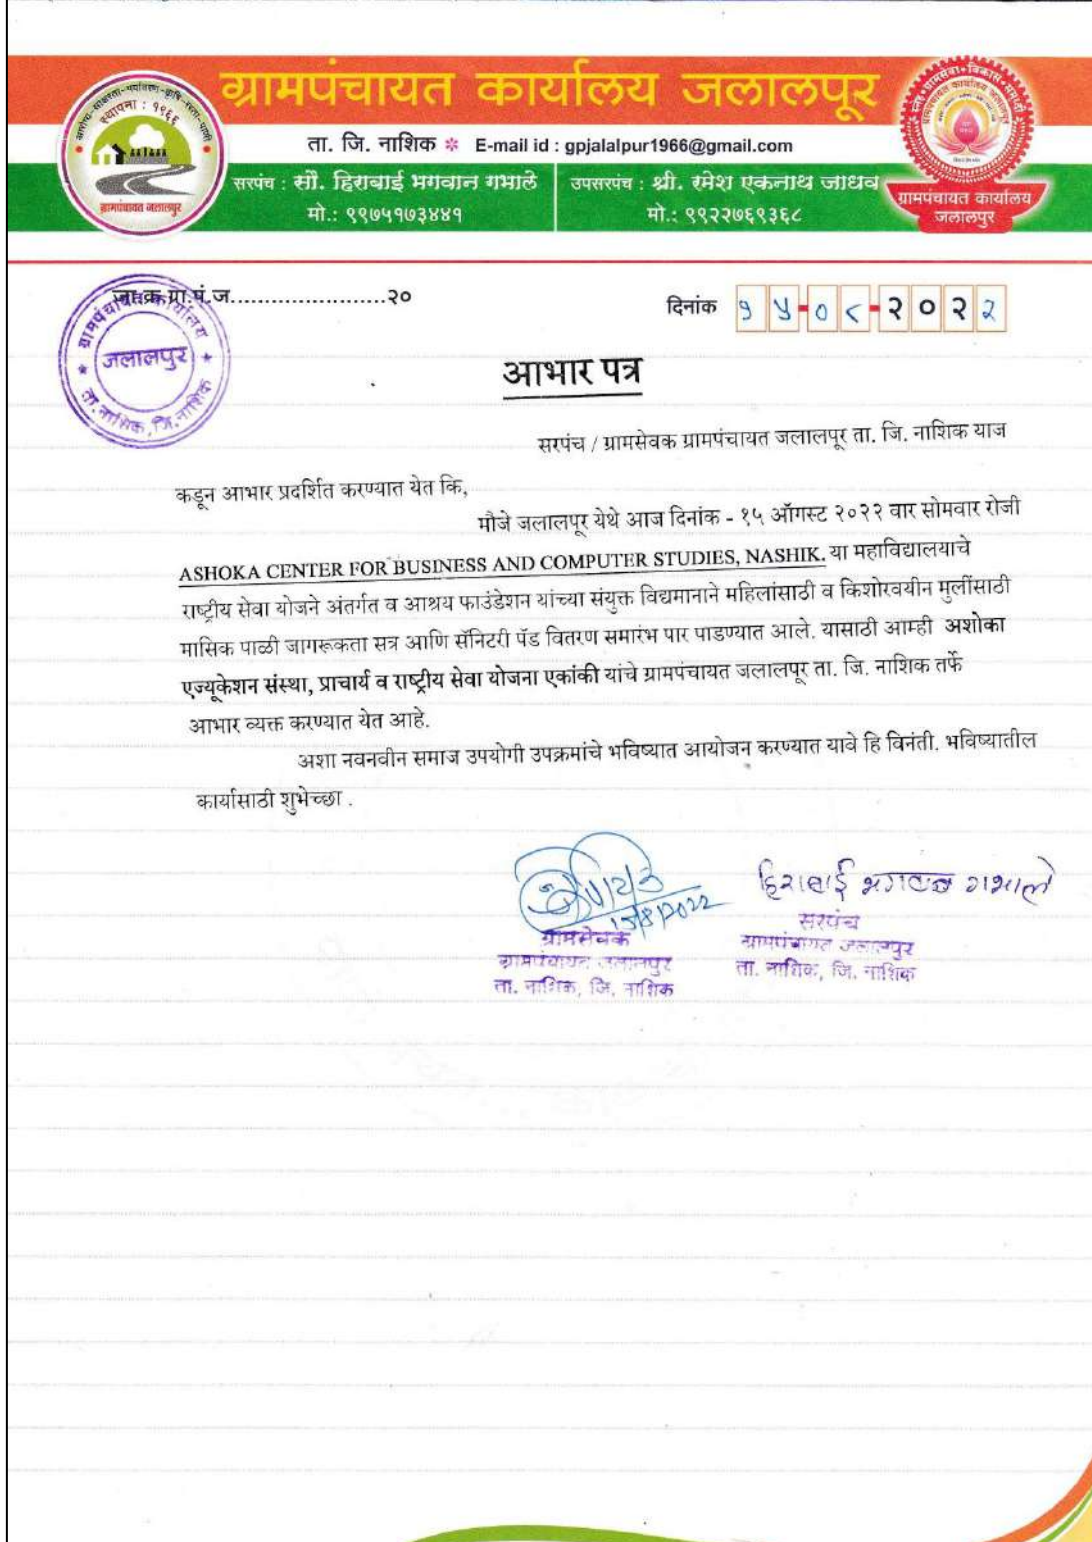 ग्रामपंचायत कार्यालय जलालपूर
ता. जि. नाशिक * E-mail id : gpjalalpur1966@gmail.com
स्थापना : १९६६
ग्रामपंचायत जलालपुर
सरपंच : सौ. हिराबाई भगवान गभाले
मो.: ९९७५१७३४४१
उपसरपंच : श्री. रमेश एकनाथ जाधव
मो.: ९९२२७६९३६८
ग्रामपंचायत कार्यालय
जलालपुर
जा.क्र.ग्रा.पं.ज.......................२०
दिनांक १५-०८-२०२२
ग्रामपंचायत कार्यालय
जलालपुर
ता. नाशिक, जि. नाशिक
आभार पत्र
सरपंच / ग्रामसेवक ग्रामपंचायत जलालपूर ता. जि. नाशिक याज
कडून आभार प्रदर्शित करण्यात येत कि,
मौजे जलालपूर येथे आज दिनांक - १५ ऑगस्ट २०२२ वार सोमवार रोजी
ASHOKA CENTER FOR BUSINESS AND COMPUTER STUDIES, NASHIK. या महाविद्यालयाचे
राष्ट्रीय सेवा योजने अंतर्गत व आश्रय फाउंडेशन यांच्या संयुक्त विद्यमानाने महिलांसाठी व किशोरवयीन मुलींसाठी
मासिक पाळी जागरूकता सत्र आणि सॅनिटरी पॅड वितरण समारंभ पार पाडण्यात आले. यासाठी आम्ही अशोका
एज्यूकेशन संस्था, प्राचार्य व राष्ट्रीय सेवा योजना एकांकी यांचे ग्रामपंचायत जलालपूर ता. जि. नाशिक तर्फे
आभार व्यक्त करण्यात येत आहे.
अशा नवनवीन समाज उपयोगी उपक्रमांचे भविष्यात आयोजन करण्यात यावे हि विनंती. भविष्यातील
कार्यासाठी शुभेच्छा .
15/8/2022
ग्रामसेवक
ग्रामपंचायत जलालपुर
ता. नाशिक, जि. नाशिक
हिराबाई भगवान गभाले
सरपंच
ग्रामपंचायत जलालपुर
ता. नाशिक, जि. नाशिक